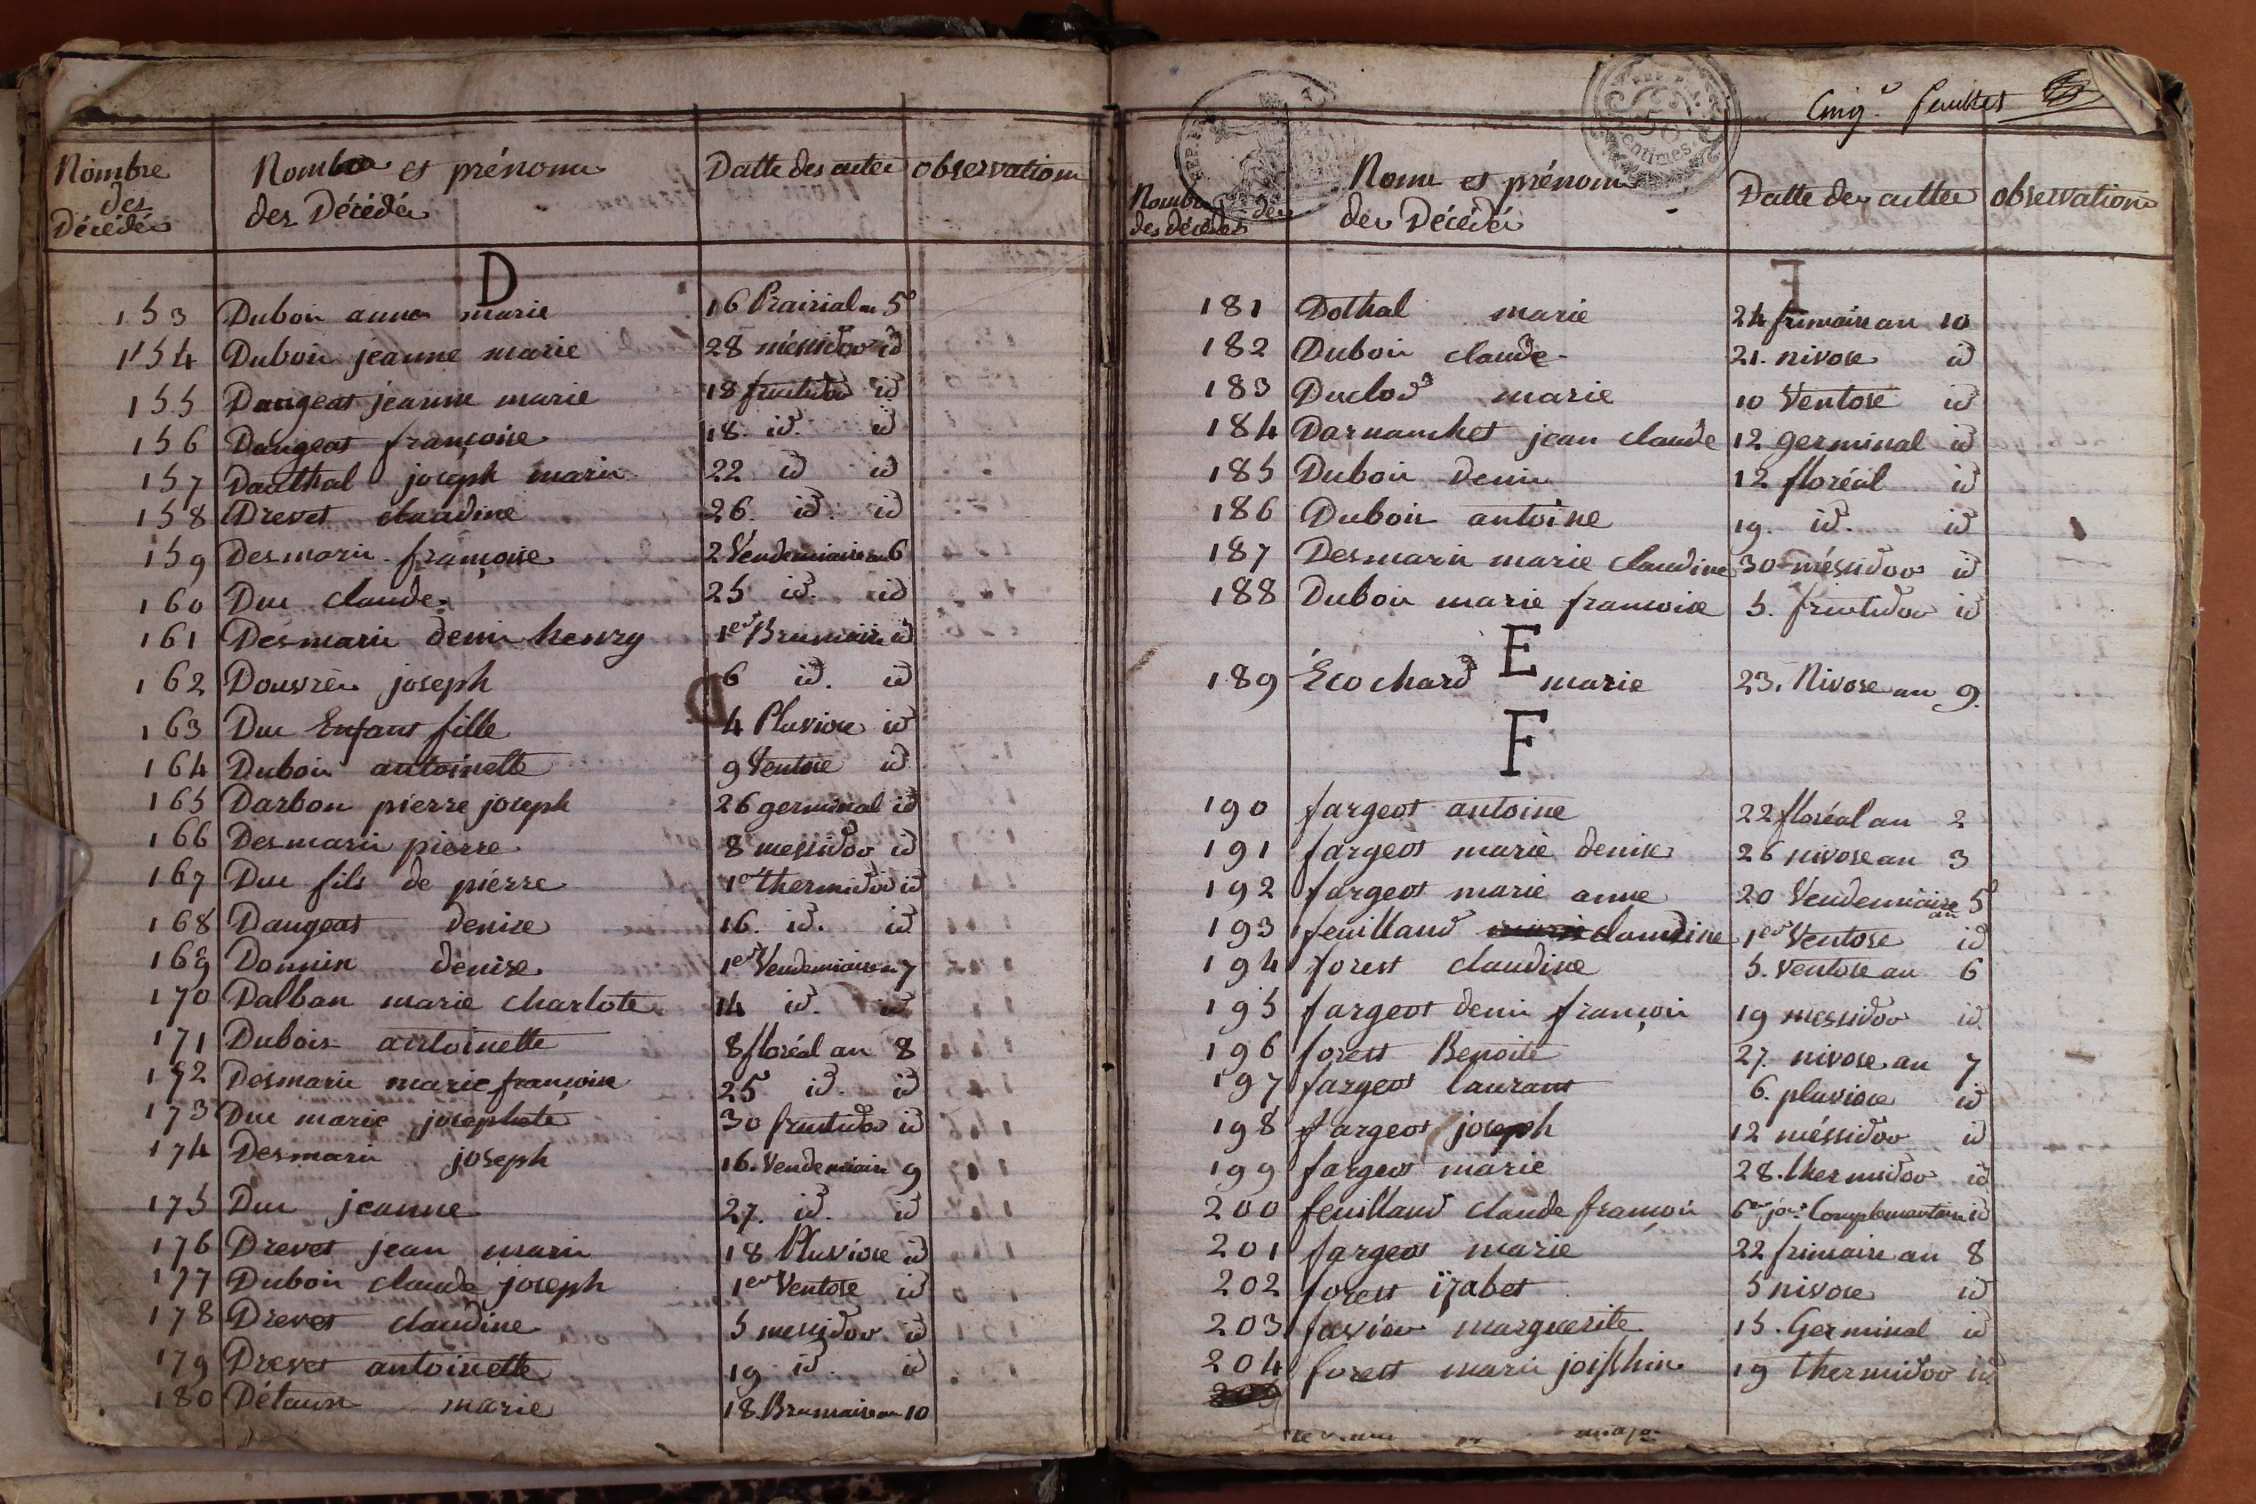 Nombre des Décédés
Noms et prénoms des Décédés
Datte des acttes
observations
D
153 Dubois anne marie 16 Prairial an 5e
154 Dubois jeanne marie 28 méssidor id
155 Daugeot jeanne marie 18 fructidor id
156 Daugeot françoise 18. id. id
157 Dauthal joseph marie 22 id id
158 Drevet claudine 26. id. id
159 Desmaris françoise 2 Véndemiaire an 6
160 Duc claude 25 id. id
161 Desmaris denis henry 1er Brumaire id
162 Douvrés joseph 6 id. id
163 Duc Enfant fille 4 Pluviose id
164 Dubois antoinette 9 Ventose id
165 Darbon pierre joseph 26 germinal id
166 Desmaris pierre 8 messidor id
167 Duc fils de pierre 1er thermidor id
168 Daugeot denise 16. id. id
169 Donnin denise 1er Vendemiaire an 7
170 Dalban marie charlote 14 id. id
171 Dubois antoinette 8 floréal an 8
172 Desmaris marie françoise 25 id. id
173 Duc marie josephete 30 fructidor id
174 Desmaris joseph 16. Vendemiaire 9
175 Duc jeanne 27. id. id
176 Drevet jean marie 18 Pluviose id
177 Dubois claude joseph 1er Ventose id
178 Drevet claudine 5 messidor id
179 Drevet antoinette 19 id. id
180 marie 18. Brumaire an 10
Cinqe. feuillet
REP. FRA.
50 centimes.
Nombre des
des décédés
Noms et prénoms des Décédés
Datte des acttes
observations
181 Dothal marie 24 frimaire an 10
182 Dubois claude 21. nivose id
183 Duclos marie 10 Ventose id
184 Darnanchet jean claude 12 germinal id
185 Dubois denis 12 floréal id
186 Dubois antoine 19. id. id
187 Desmaris marie claudine 30 méssidor id
188 Dubois marie francoise 5. fructidor id
E
189 Écochard marie 23. Nivose an 9.
F
190 fargeot antoine 22 floréal an 2
191 fargeot marie denise 26 nivose an 3
192 fargeot marie anne 20 Vendemiaire an 5e
193 feuilland claudine 1er Ventose id
194 forest claudine 5. Ventose an 6
195 fargeot denis françois 19 messidor id
196 forest Benoite 27. nivose an 7
197 fargeot laurant 6. pluviose id
198 fargeot joseph 12 méssidor id
199 fargeot marie 28. thermidor id
200 feuilland claude françois 6e jour Complementaire id
201 fargeot marie 22 frimaire an 8
202 forest izabet 5 nivose id
203 favier marguerite 15. Germinal id
204 forest marie 19 thermidor id